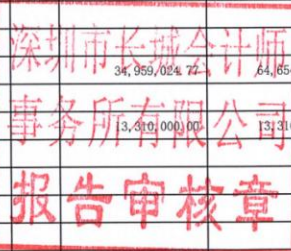 深圳市长城会计师
34,959,024.77 64,65
事务所有限公司
13,310,000.00 13,310
报告审核章